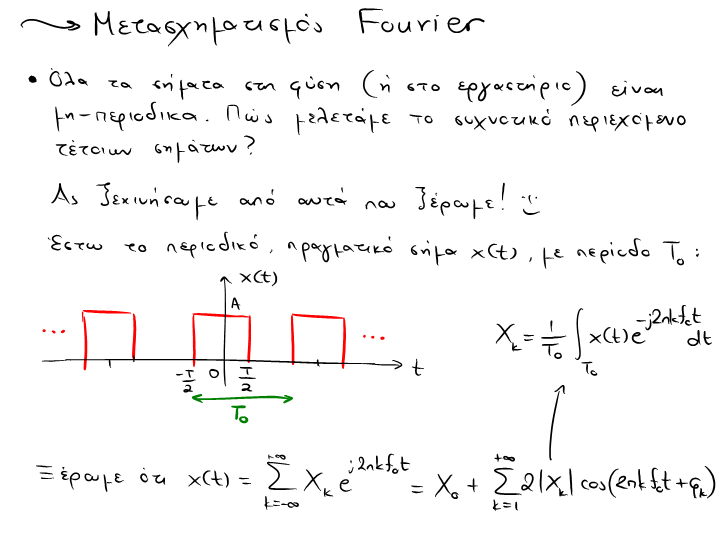 Μετασχηματισμός Fourier
• Όλα τα σήματα στη φύση (ή στο εργαστήριο) είναι
μη-περιοδικα. Πώς μελετάμε το συχνοτικό περιεχόμενο
τέτοιων σημάτων?
Ας ξεκινήσουμε από αυτά που ξέρουμε! :)
Έστω το περιοδικό, πραγματικό σήμα x(t), με περίοδο T₀:
x(t)
A
... ...
-T/2 0 T/2 t
T₀
X_k = 1/T₀ ∫_{T₀} x(t) e^{-j2πkf₀t} dt
Ξέρουμε ότι x(t) = Σ_{k=-∞}^{+∞} X_k e^{j2πkf₀t} = X₀ + Σ_{k=1}^{+∞} 2|X_k| cos(2πkf₀t + φ_k)